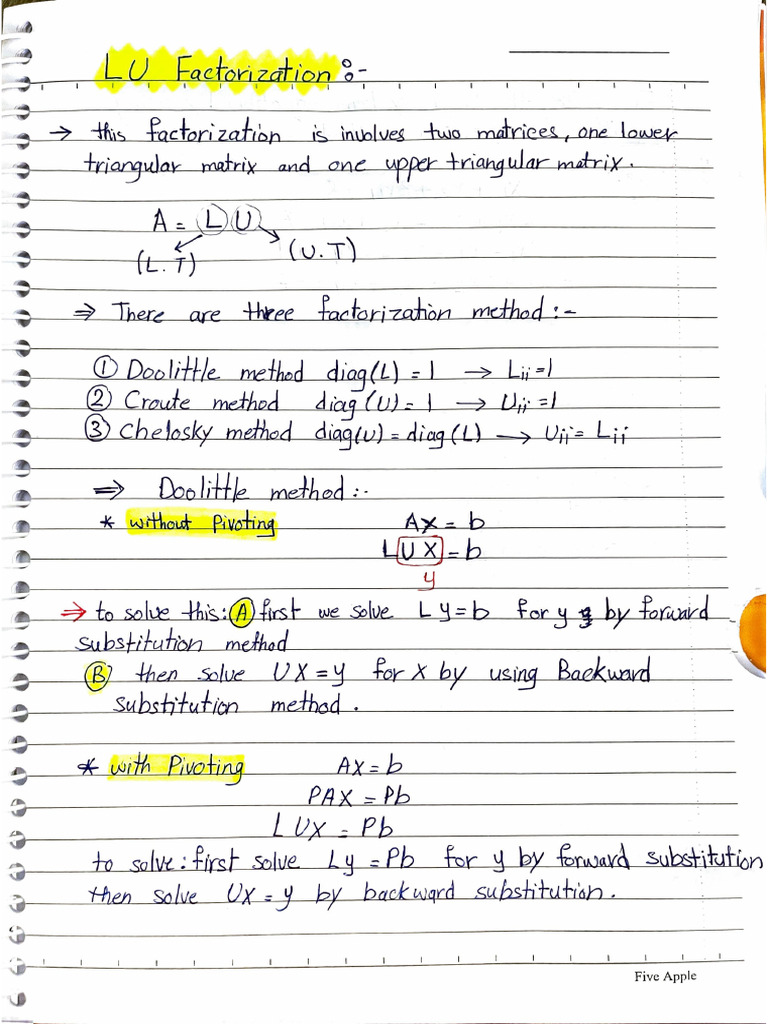 LU Factorization :-
→ this factorization is involves two matrices, one lower
triangular matrix and one upper triangular matrix.
A = L U
(L.T) (U.T)
⇒ There are three factorization method :-
① Doolittle method diag(L) = 1 → Lii = 1
② Croute method diag (U) = 1 → Uii = 1
③ Chelosky method diag(U) = diag(L) → Uii = Lii
⇒ Doolittle method :-
* without Pivoting AX = b
LUX = b
y
⇒ to solve this: A first we solve Ly = b for y by forward
substitution method
B then solve UX = y for X by using Backward
substitution method.
* with Pivoting AX = b
PAX = Pb
LUX = Pb
to solve: first solve Ly = Pb for y by forward substitution
then solve UX = y by backward substitution.
Five Apple